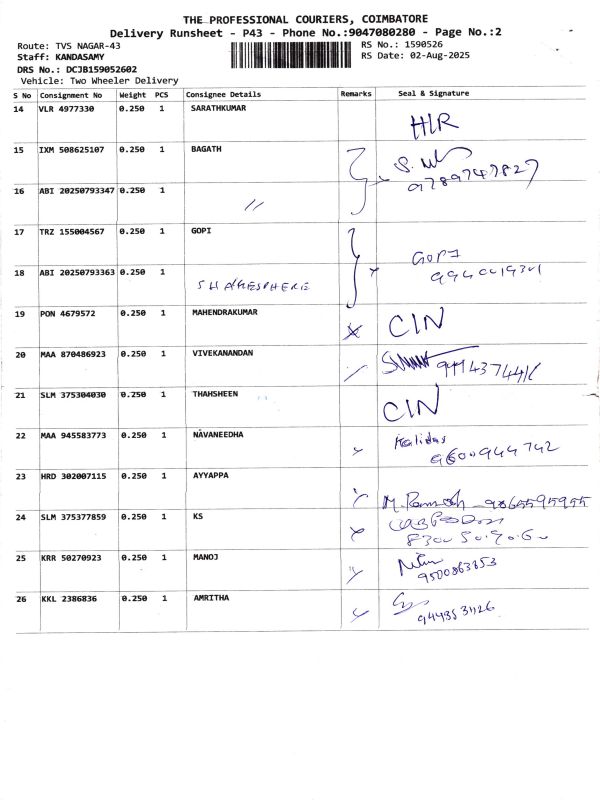 THE PROFESSIONAL COURIERS, COIMBATORE
Delivery Runsheet - P43 - Phone No.:9047080280 - Page No.:2
Route: TVS NAGAR-43
RS No.: 1590526
Staff: KANDASAMY
RS Date: 02-Aug-2025
DRS No.: DCJB159052602
Vehicle: Two Wheeler Delivery
S No Consignment No Weight PCS Consignee Details Remarks Seal & Signature
14 VLR 4977330 0.250 1 SARATHKUMAR
HLR
15 IXM 508625107 0.250 1 BAGATH
9789747827
16 ABI 20250793347 0.250 1
"
17 TRZ 155004567 0.250 1 GOPI
GOPI
18 ABI 20250793363 0.250 1
SHAKESPHERE
19 PON 4679572 0.250 1 MAHENDRAKUMAR
CIN
20 MAA 870486923 0.250 1 VIVEKANANDAN
21 SLM 375304030 0.250 1 THAHSHEEN
CIN
22 MAA 945583773 0.250 1 NAVANEEDHA
Kalidas
9600944742
23 HRD 302007115 0.250 1 AYYAPPA
M. Ramesh - 9865595955
24 SLM 375377859 0.250 1 KS
25 KRR 50270923 0.250 1 MANOJ
9500863853
26 KKL 2386836 0.250 1 AMRITHA